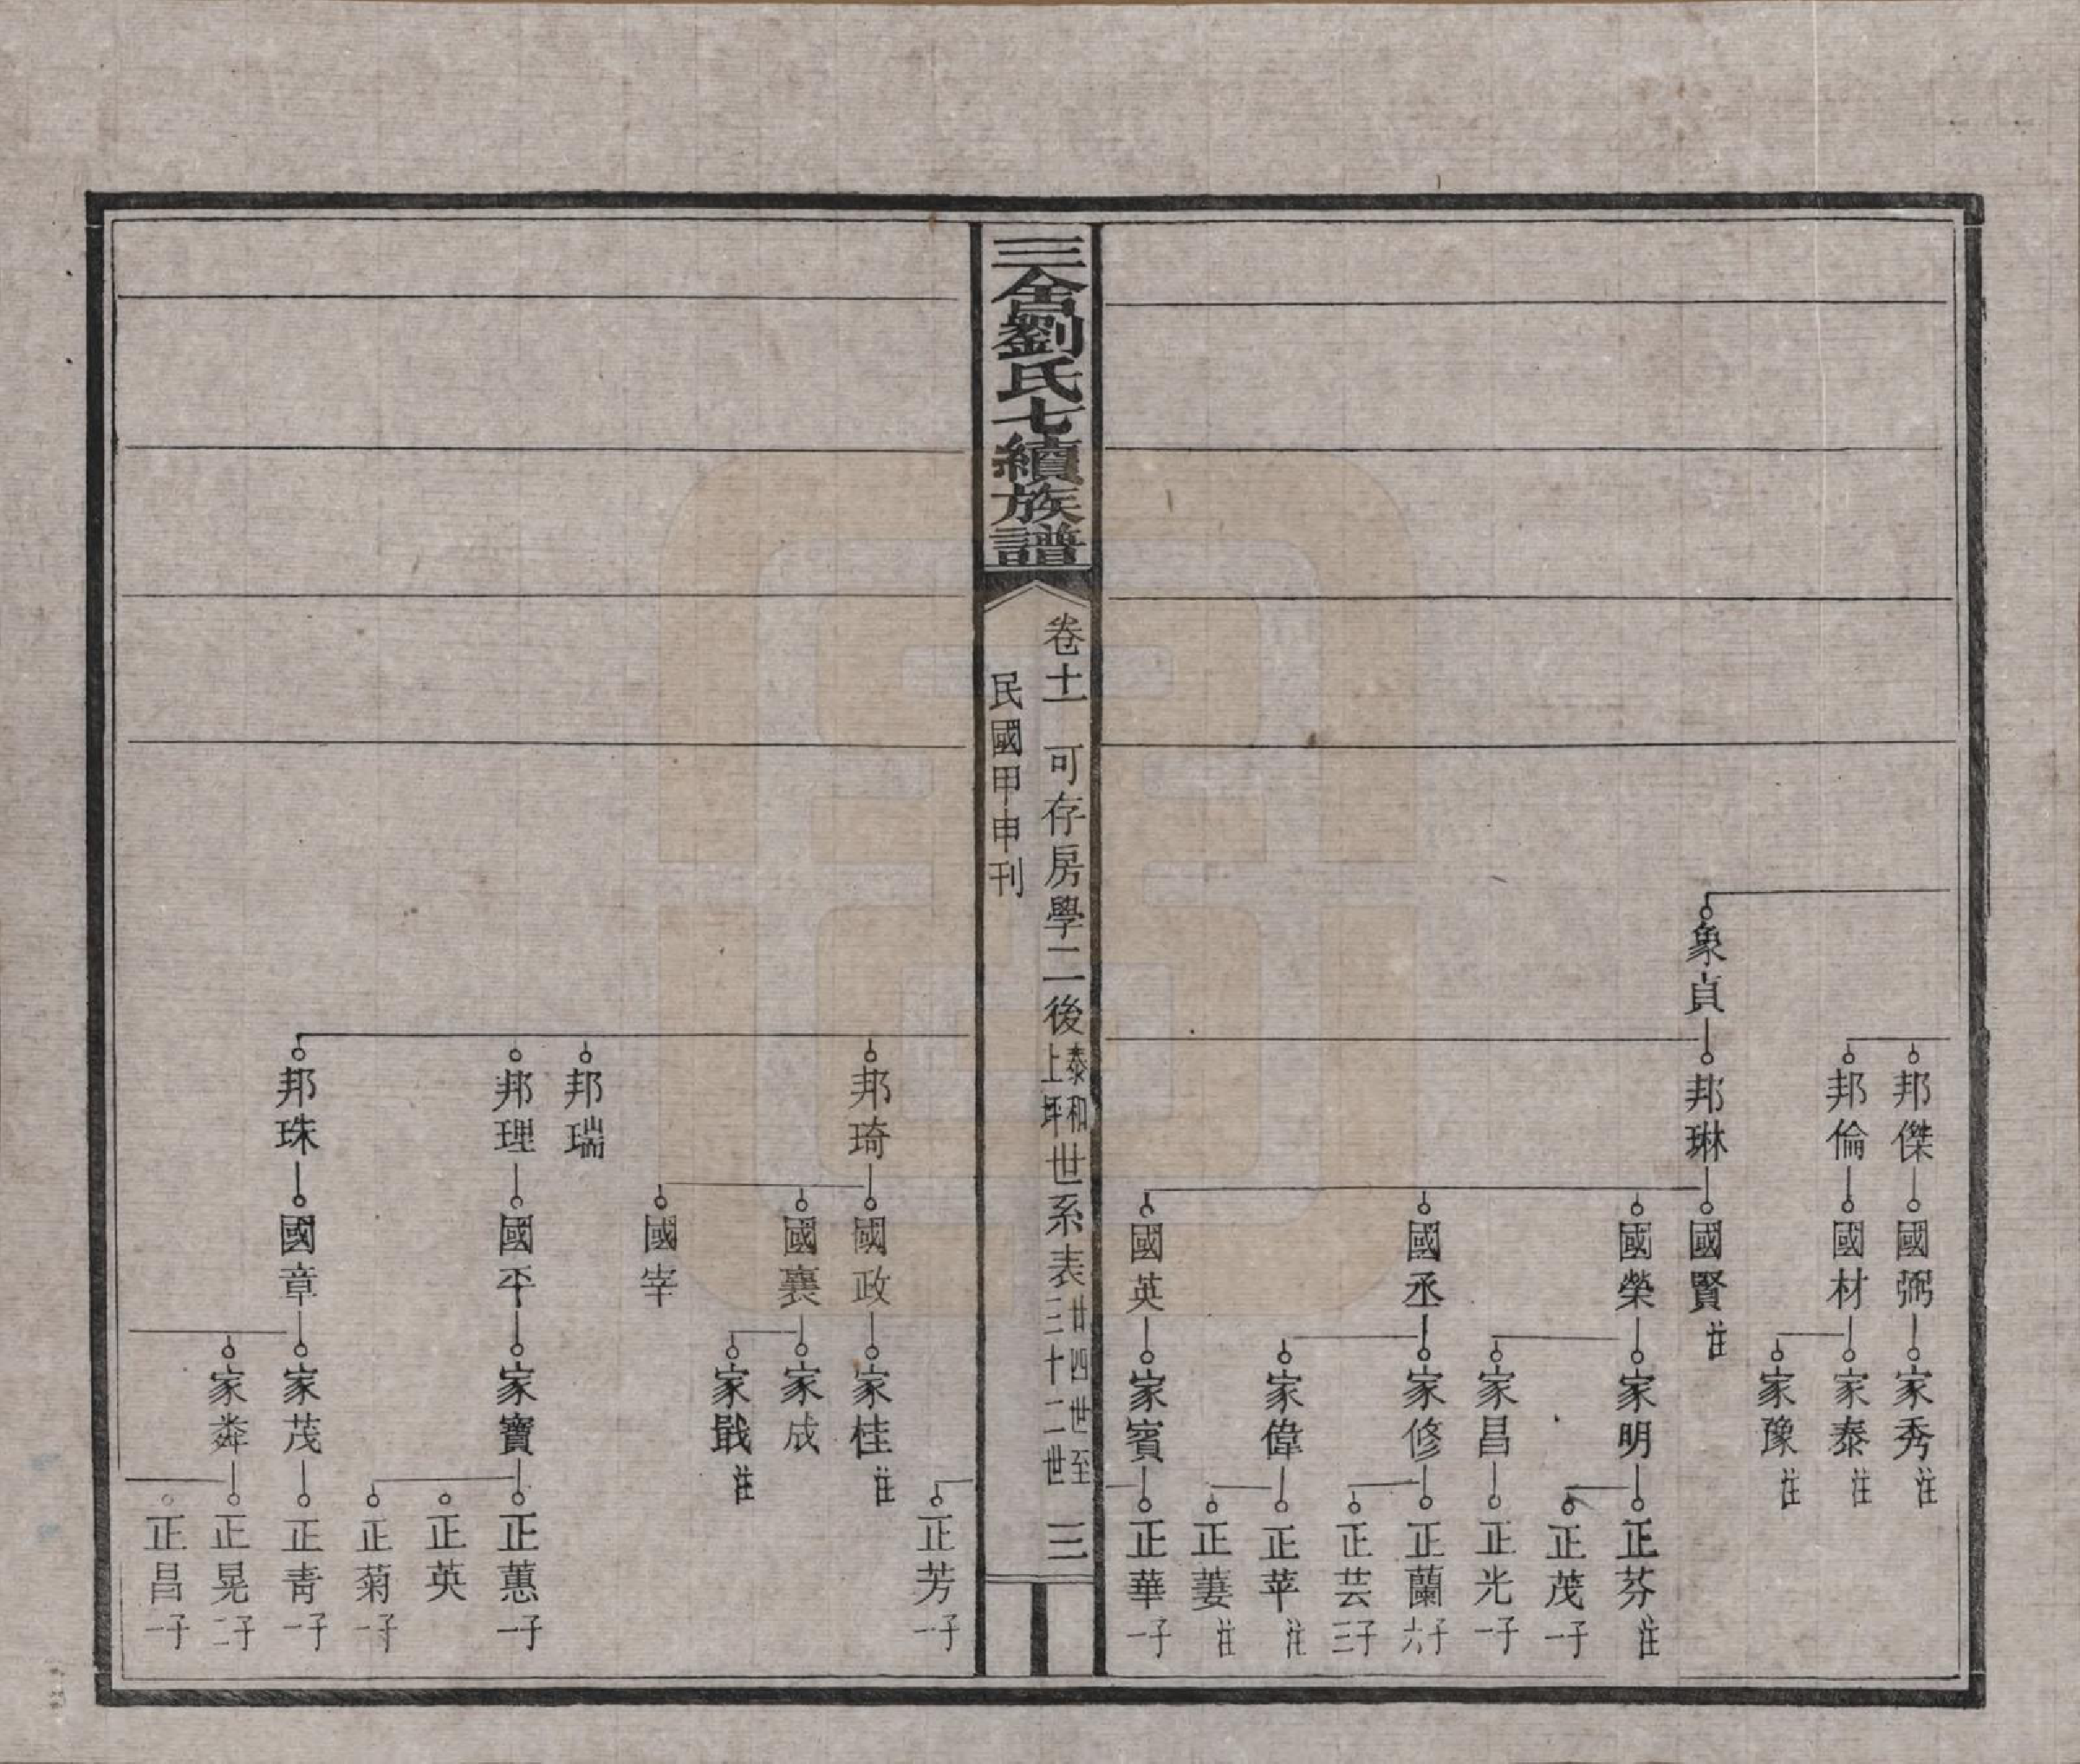 邦傑 國弼 家秀 註
邦倫 國材 家泰 註
家豫 註
象貞 邦琳 國賢 註
國榮 家明 正芬 註
正茂 一子
家昌 正光 一子
國丞 家修 正蘭 六子
正芸 三子
家偉 正苹 註
正萋 註
國英 家賓 正華 一子
三舍劉氏七續族譜
卷十一 可存房學二後 泰和上坪 世系表 廿四世至三十二世 三
民國甲申刊
正芳 一子
邦琦 國政 家桂 註
國襄 家成
家戢 註
國宰
邦瑞
邦理 國平 家寶 正蕙 一子
正英
正菊 一子
邦珠 國章 家茂 正青 一子
家粦 正晃 二子
正昌 一子